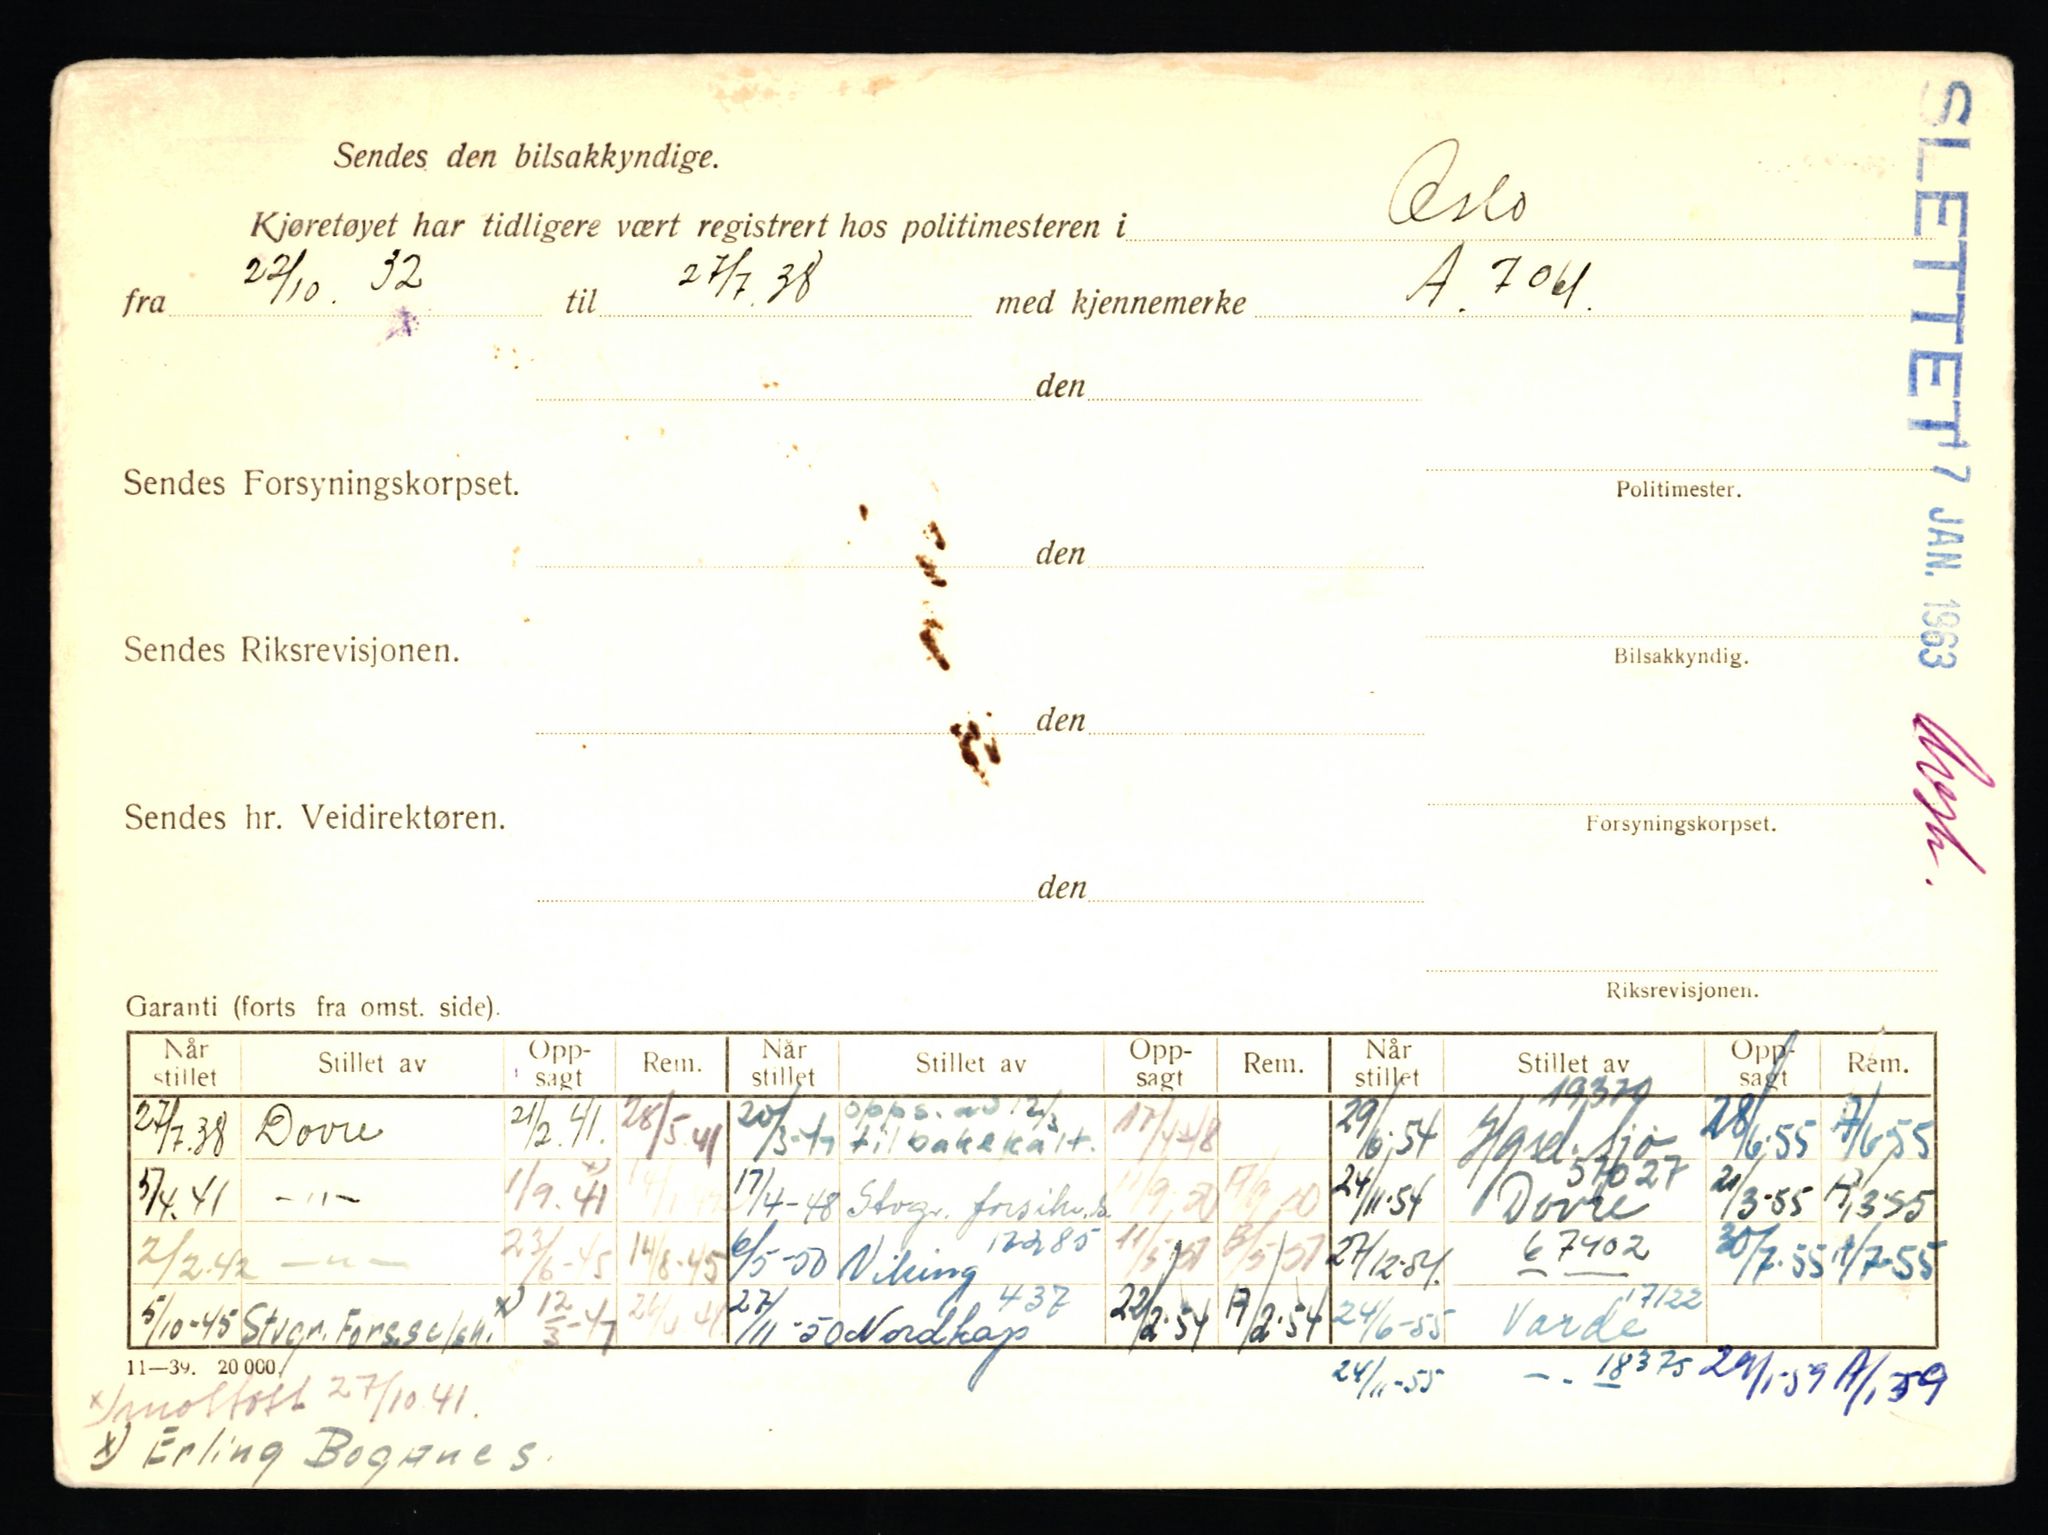 Sendes den bilsakkyndige.
Kjøretøyet har tidligere vært registrert hos politimesteren i Oslo
fra 22/10. 32 til 27/7. 38 med kjennemerke A. 7061.
den
Sendes Forsyningskorpset.
Politimester.
den
Sendes Riksrevisjonen.
Bilsakkyndig.
den
Sendes hr. Veidirektøren.
Forsyningskorpset.
den
Riksrevisjonen.
SLETTET 7 JAN. 1963
Garanti (forts fra omst. side).
Når stillet Stillet av Oppsagt Rem. Når stillet Stillet av Oppsagt Rem. Når stillet Stillet av Oppsagt Rem.
27/7.38 Dovre 21/2.41. 28/5.41 opps. av 12/3 tilbakekalt. 17/4-48 29/6.54 19370 28/6.55 /6.55
5/4.41 —"— 1/9.41 17/4-48 Stvgr. 24/11-54 57027 Dovre /3-55 /3-55
2/2.42 —"— 23/6-45 14/8.45 6/5-50 Viking 27/12-54. 67402 30/7.55 /7-55
5/10-45 Stvgr. Fors.selsk. x) 12/3-47 27/11-50 437 Nordkap 22/2.54 /2.54 24/6-55 17122 Varde
24/11-55 — 18375 29/1-59 /1 59
11—39. 20 000.
x) mottatt 27/10.41.
x) Erling Boganes.